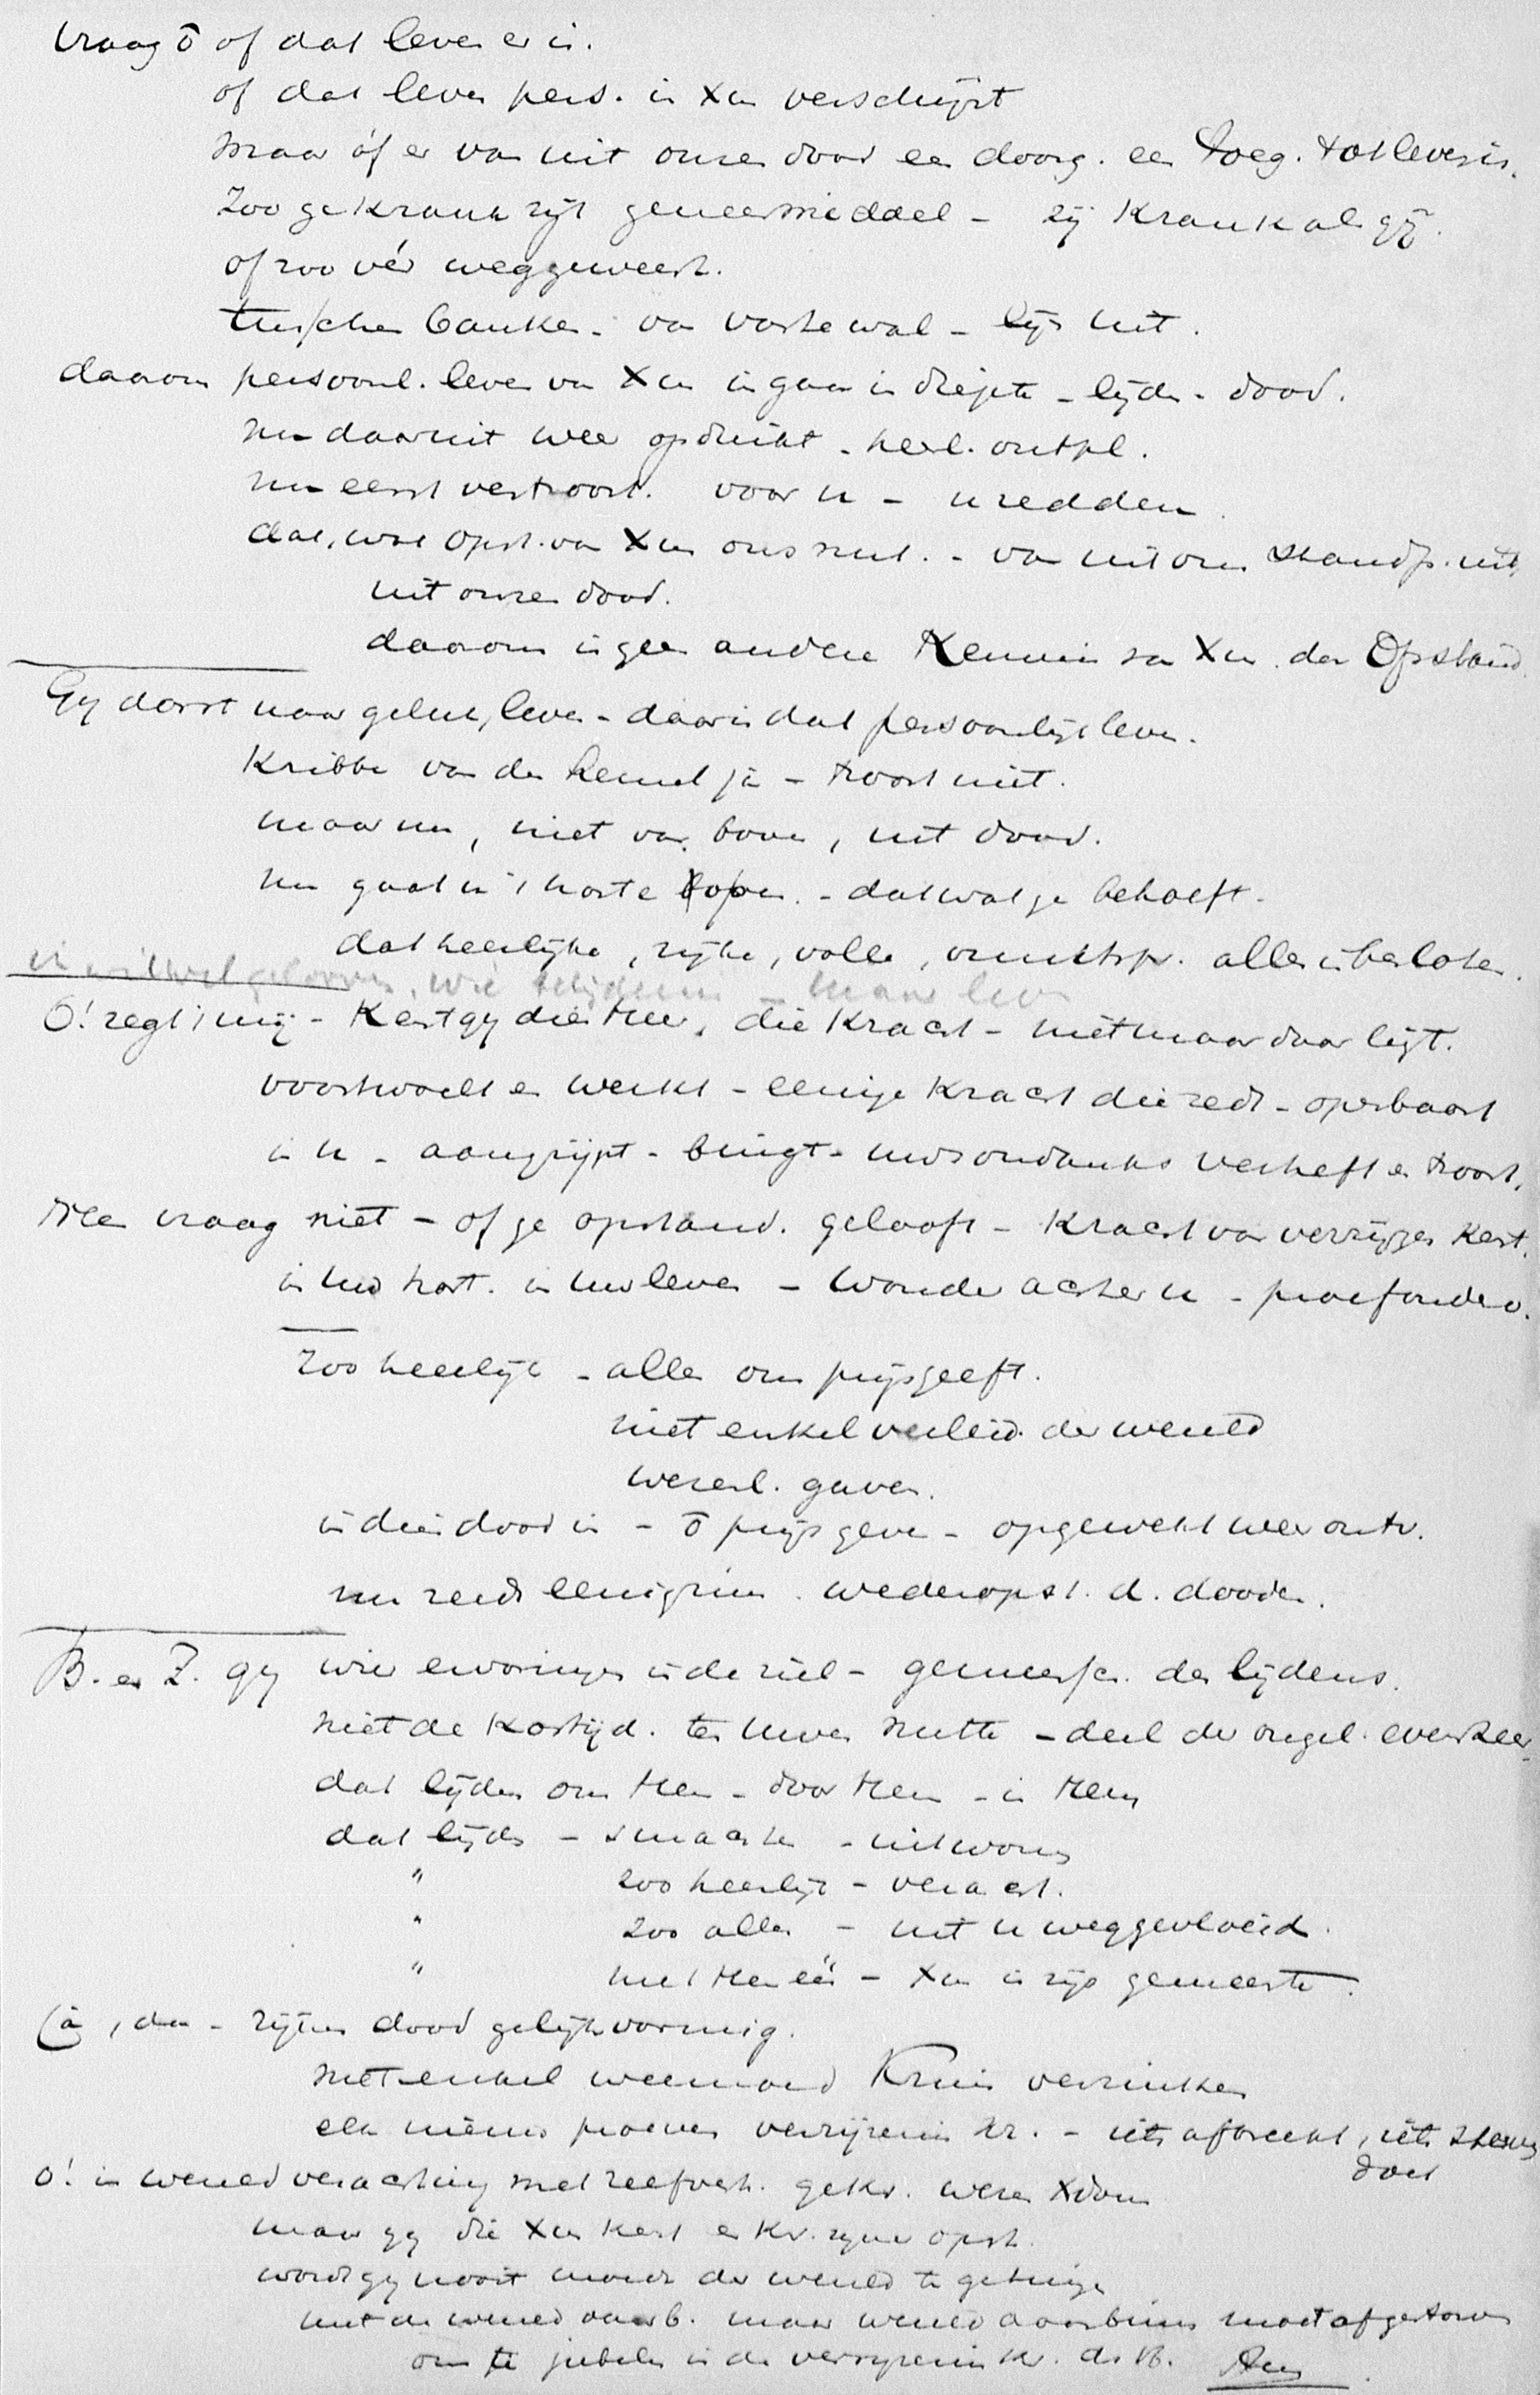 Vraag ō of dat leven er is.
of dat leven pers. in Xus verschijnt
maar óf er van uit onzen dood een doorg. een toeg. tot leven is.
Zoo ge krank zijt geneesmiddel - zij krank als gij.
of zoo vér weggeweest.
tusschen banken - van vaste wal - lijn uit.
daarom persoonl. leven van Xus ingaan in diepte - lijden - dood.
nu daaruit weer opduikt - heerl. ontpl.
nu eerst vertroost. voor u - u redden
dat, wat Opst. van Xus ons nut. - van uit ons standp. uit,
uit onzen dood.
daarom is geen andere Kennis van Xus dan Opstand.
Gij dorst naar geluk, leven - daar is dat persoonlijk leven.
Kribbe van den hemel ja - troost niet.
maar nu, niet van boven, uit dood.
nu gaat u 't harte open. - dat wat ge behoeft.
dat heerlijke, rijke, volle, alles in besloten.
O! zegt mij - Kent gij die Heer, die Kracht - niet maar daar ligt.
voortwoelt en werkt - eenige Kracht die redt - openbaart
in u - aangrijpt - buigt - uws ondanks verheft en troost.
Neen vraag niet - of ge opstand. gelooft - Kracht van verrijzen kent.
in uw hart. in uw leven - wonder achter u - proefonderv.
Zoo heerlijk - alles om prijsgeeft.
niet enkel verleid. der wereld
wezenl. gaven.
in dien dood in - ō prijs geven - opgewekt weer ontv.
nu reeds eenigzins. wederopst. d. dooden.
B. en Z. gij wier ervaringen in de ziel - gemeensch. des lijdens.
niet de Kastijd. ten uwen nutte - deel der ongel. evenzeer
dat lijden om Hem - door Hem - in Hem
dat lijden - smaakte - uitwon
" zoo heerlijk - veracht.
" zoo alles - uit u weggevloeid.
" met Hem één - Xus in zijn gemeente.
Ja, dan - zijnen dood gelijkvormig.
niet enkel weemoed Kruis verzinken
een nieuw proeven verrijzenis Kr. - iets afbreekt, iets sterven doet
O! in wereldverachting met zelfverh. gekr. weze Xdom
maar gij die Xus kent en Kr. zijner opst.
wordt gij nooit moede der wereld te getuigen
niet de wereld daarb. maar wereld daarbinnen moet afgestorven
om te jubelen in de verrijzenis Kr. des B. Amen